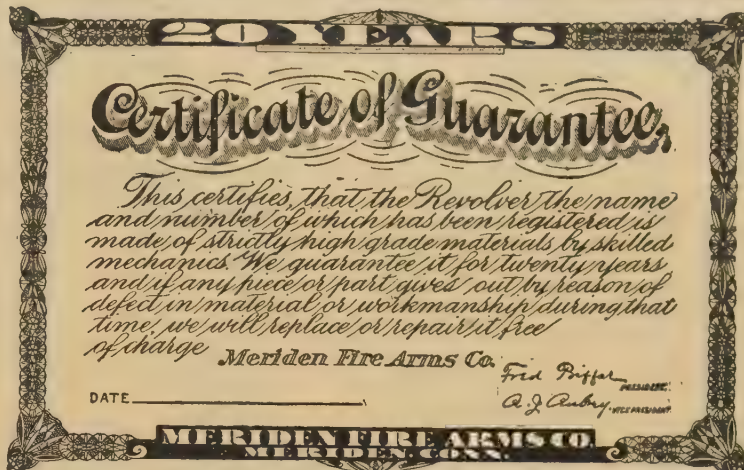 20 YEARS
Certificate of Guarantee
This certifies, that the Revolver the name
and number of which has been registered is
made of strictly high grade materials by skilled
mechanics. We guarantee it for twenty years
and if any piece or part gives out by reason of
defect in material or workmanship during that
time, we will replace or repair it free
of charge Meriden Fire Arms Co.
Fred Biffar
PRESIDENT.
DATE
A. J. Aubrey
VICE PRESIDENT.
MERIDEN FIRE ARMS CO.
MERIDEN, CONN.